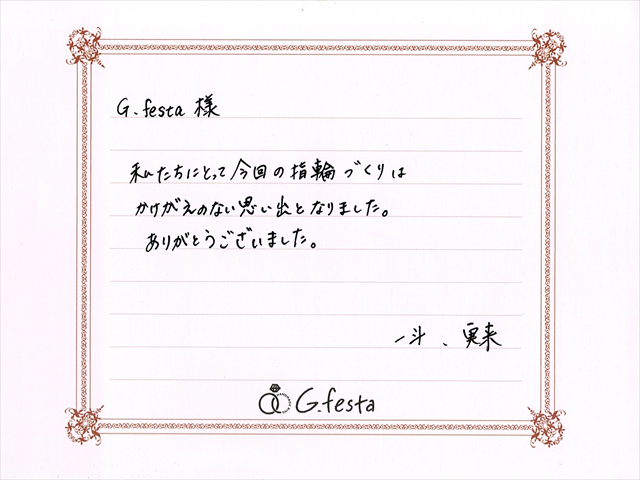 G.festa 様
私たちにとって今回の指輪づくりは
かけがえのない思い出となりました。
ありがとうございました。
一斗、実来
G.festa